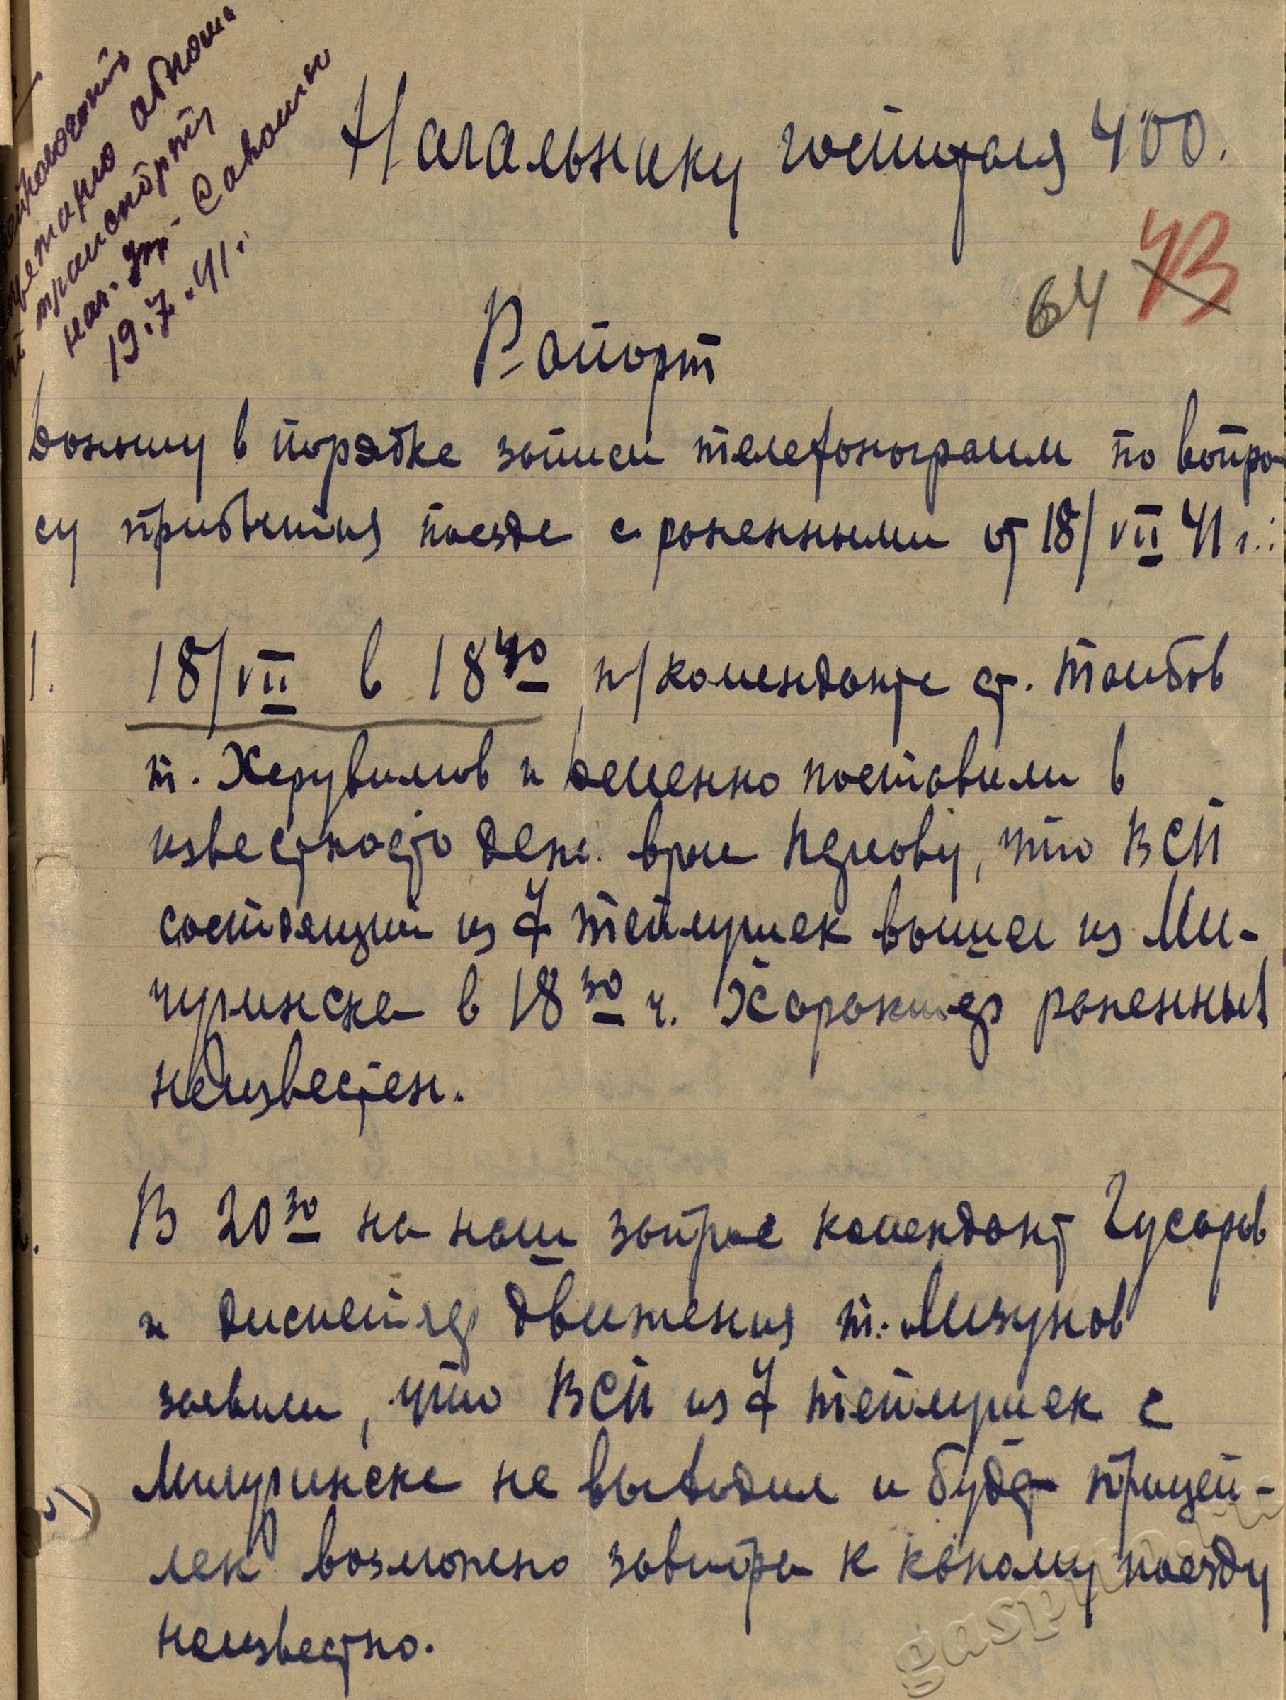 транспорту
19.7.41 г.
Начальнику госпиталя 400.
64 43
Рапорт
Доношу в порядке записи телефонограмм по вопро-
су прибытия поезда с раненными от 18/VII 41 г.:
1. 18/VII в 18 40 п/коменданта ст. Тамбов
т. Херувимов и Деменко поставили в
известность деж. врача Пермову, что ВСП
состоящий из 7 теплушек вышел из Ми-
чуринска в 18 30 ч. Характер раненных
неизвестен.
В 20 30 на наш запрос комендант Гусаров
и диспетчер движения т. Мизунов
заявили, что ВСП из 7 теплушек с
Мичуринска не выходил и будет прицеп-
лен возможно завтра к какому поезду
неизвестно.